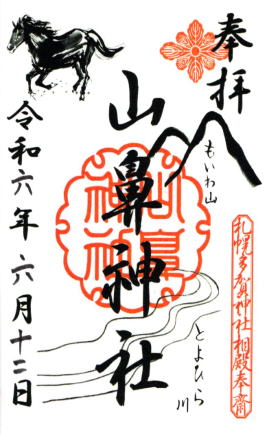 奉拝
もいわ山
札幌多賀神社相殿奉齋
山鼻神社
山鼻神社
とよひら川
令和六年六月十二日